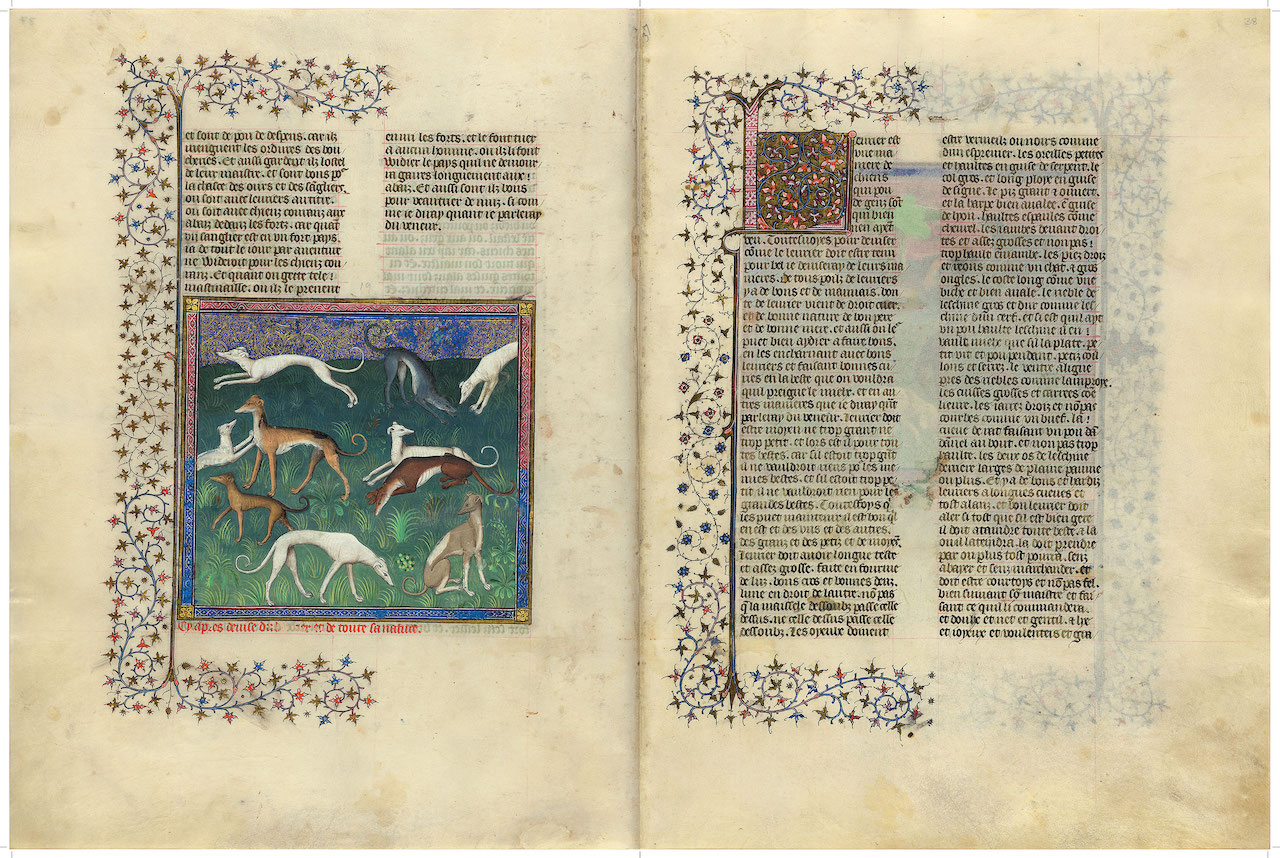 et sont de pou de despens. car ilz
menguent les ordures des bou
cheries. Et aussi gardent ilz lostel
de leur maistre. et sont bons por
la chasse des ours et des sangliers.
ou soit aucc leuriers au titre.
ou soit auec chienz couranz aux
abaiz dedanz les fortz. car quant
vn sanglier est en vn fort pays.
ia de tout le iour par auenture
ne vuideroit pour les chienz cou
ranz. Et quant on gette tele
mastinaille. ou ilz le prenent
enmi les forts. et le font tuer
a aucun homme. ou ilz li font
vuidier le pays quil ne demour
ra gaires longuement aux
abaiz. Et aussi sont ilz bons
pour veautrer de nuiz. si com
me ie diray quant ie parleray
du veneur.
Cy apres deuise du leurier et de toute sa nature.
38
Leurier est
vne ma
niere de
chiens
qui pou
de genz sont
qui bien
nen aient
veu. Toutesuoyes pour deuiser
come le leurier doit estre tenu
pour bel ie deuiseray de leurs ma
nieres. De tous poilz de leuriers
y a de bons et de mauuais. bon
te de leurier vient de droit cuer.
et de bonne nature de bon pere
et de bonne mere. et aussi on les
puet bien aydier a faire bons.
en les encharnant auec bons
leuriers et faisant bonnes cui
ries en la beste que on vouldra
quil preigne le mielz. et en au
tres manieres que ie diray quant
parleray du veneur. Leurier doit
estre moien ne trop grant ne
trop petit. et lors est il pour tou
tes bestes. car sil estoit trop grant
il ne vauldroit riens por les me
nues bestes. et sil estoit trop pe
tit il ne vauldroit rien pour les
grandes bestes. Toutesfoys qui
les puet maintenir il est bon quil
en ait et des vns et des autres.
des granz et des petiz et de moyens.
Leurier doit auoir longue teste
et assez grosse. faite en fourme
de luz. bons cros et bonnes denz.
lune en droit de lautre. non pas
que la maissele dessoubz passe celle
dessus. ne celle dessus passe celle
dessoubz. Les oyeulx doiuent
estre vermeilz ou noirs comme
dun espreuier. les oreilles petites
et haultes en guise de serpent. le
col gros. et long ploye en guise
de signe. le piz grant et ouuert.
et la harpe bien auale. en guise
de lyon. haultes espaules come
cheurel. les iambes deuant droi
tes et assez grosses et non pas
trop haulte en iambe. les piez droiz
et reons comme un chat. et gros
ongles. le coste long come vne
biche et bien auale. le neble de
leschine gros et dur comme les
chine dun cerf. et si est quil ayt
vn pou haulte leschine il en
vault mielx que sil la plate. pe
tit vit et pou pendant. petiz coil
lons et serrez. le ventre aligne
pres des nebles comme lamproye.
les cuisses grosses et carrees coe
lieure. les iarrez droiz et non pas
courbes comme vn buef. la
queue de rat faisant vn pou da
dannel au bout. et non pas trop
haulte. les deux os de leschine
derrier larges de plaine paume
ou plus. Et y a de bons et hardiz
leuriers a longues cueues et
tost alanz. et bon leurier doit
aler si tost que sil est bien gete
il doit ataindre toute beste. et la
ou il ataindra. la doit prendre
par ou plus tost pourra. senz
abayer et senz marchander. et
doit estre courtoys et non pas fel.
bien suiuant son maistre et fai
sant ce quil li commandera.
et doulx et net et gentil. et lye
et ioyeux et voulenteis et gra